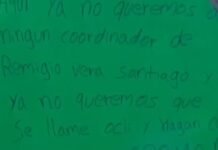 Aquí ya no queremos
ningun coordinador de
Remigio vera santiago y
ya no queremos que
Se llame ocli y Hagan